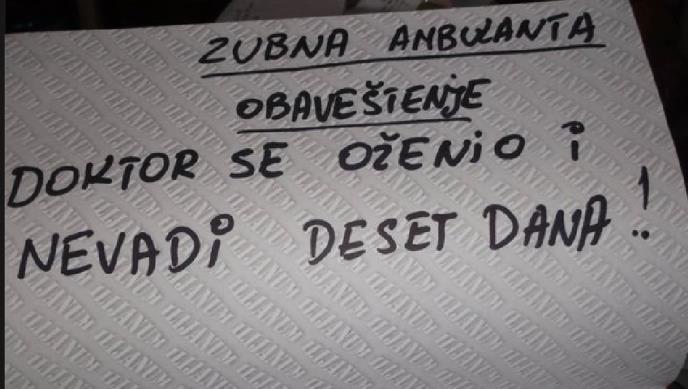 ZUBNA AMBULANTA
OBAVEŠTENJE
DOKTOR SE OŽENIO I
NEVADI DESET DANA!